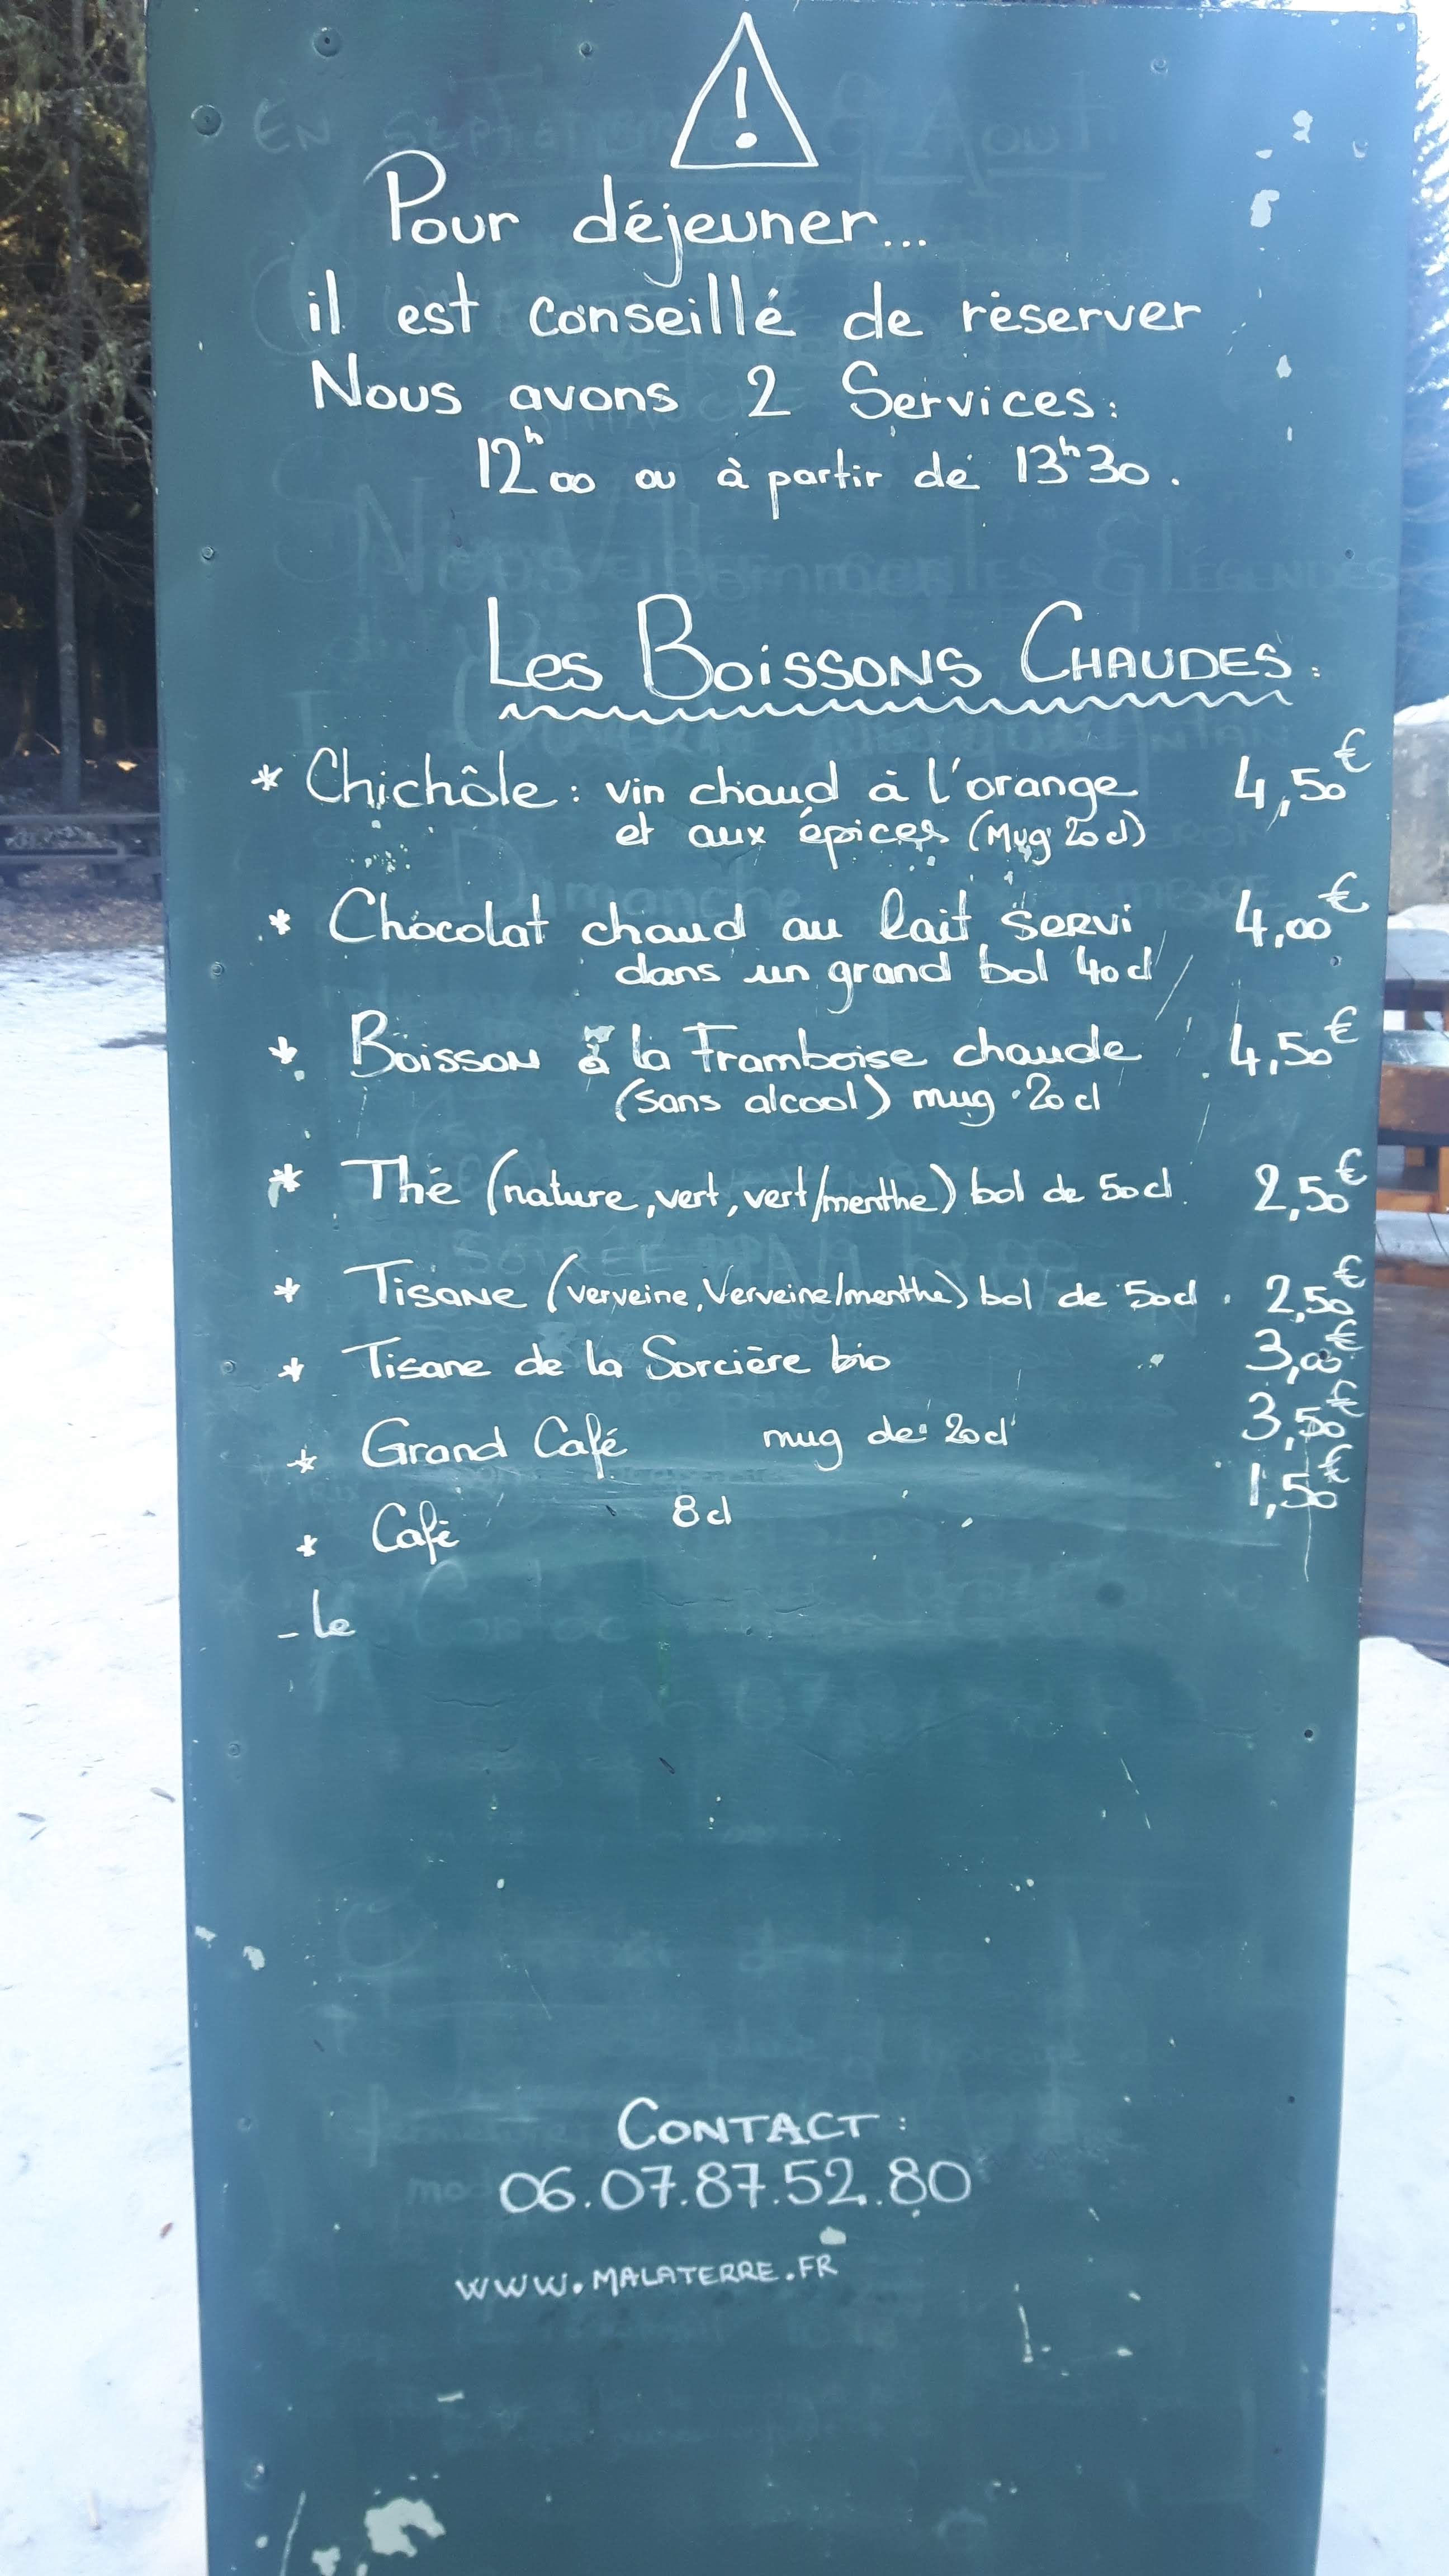 !
Pour déjeuner...
il est conseillé de réserver
Nous avons 2 Services:
12h00 ou à partir de 13h30.
Les Boissons CHAUDES:
* Chichôle: vin chaud à l'orange 4,50€
et aux épices (Mug 20cl)
* Chocolat chaud au lait servi 4,00€
dans un grand bol 40cl
* Boisson à la Framboise chaude 4,50€
(sans alcool) mug 20cl
* Thé (nature, vert, vert/menthe) bol de 50cl. 2,50€
* Tisane (verveine, Verveine/menthe) bol de 50cl. 2,50€
* Tisane de la Sorcière bio 3,00€
* Grand Café mug de 20cl 3,50€
* Café 8cl 1,50€
- le
CONTACT:
06.07.87.52.80
WWW.MALATERRE.FR